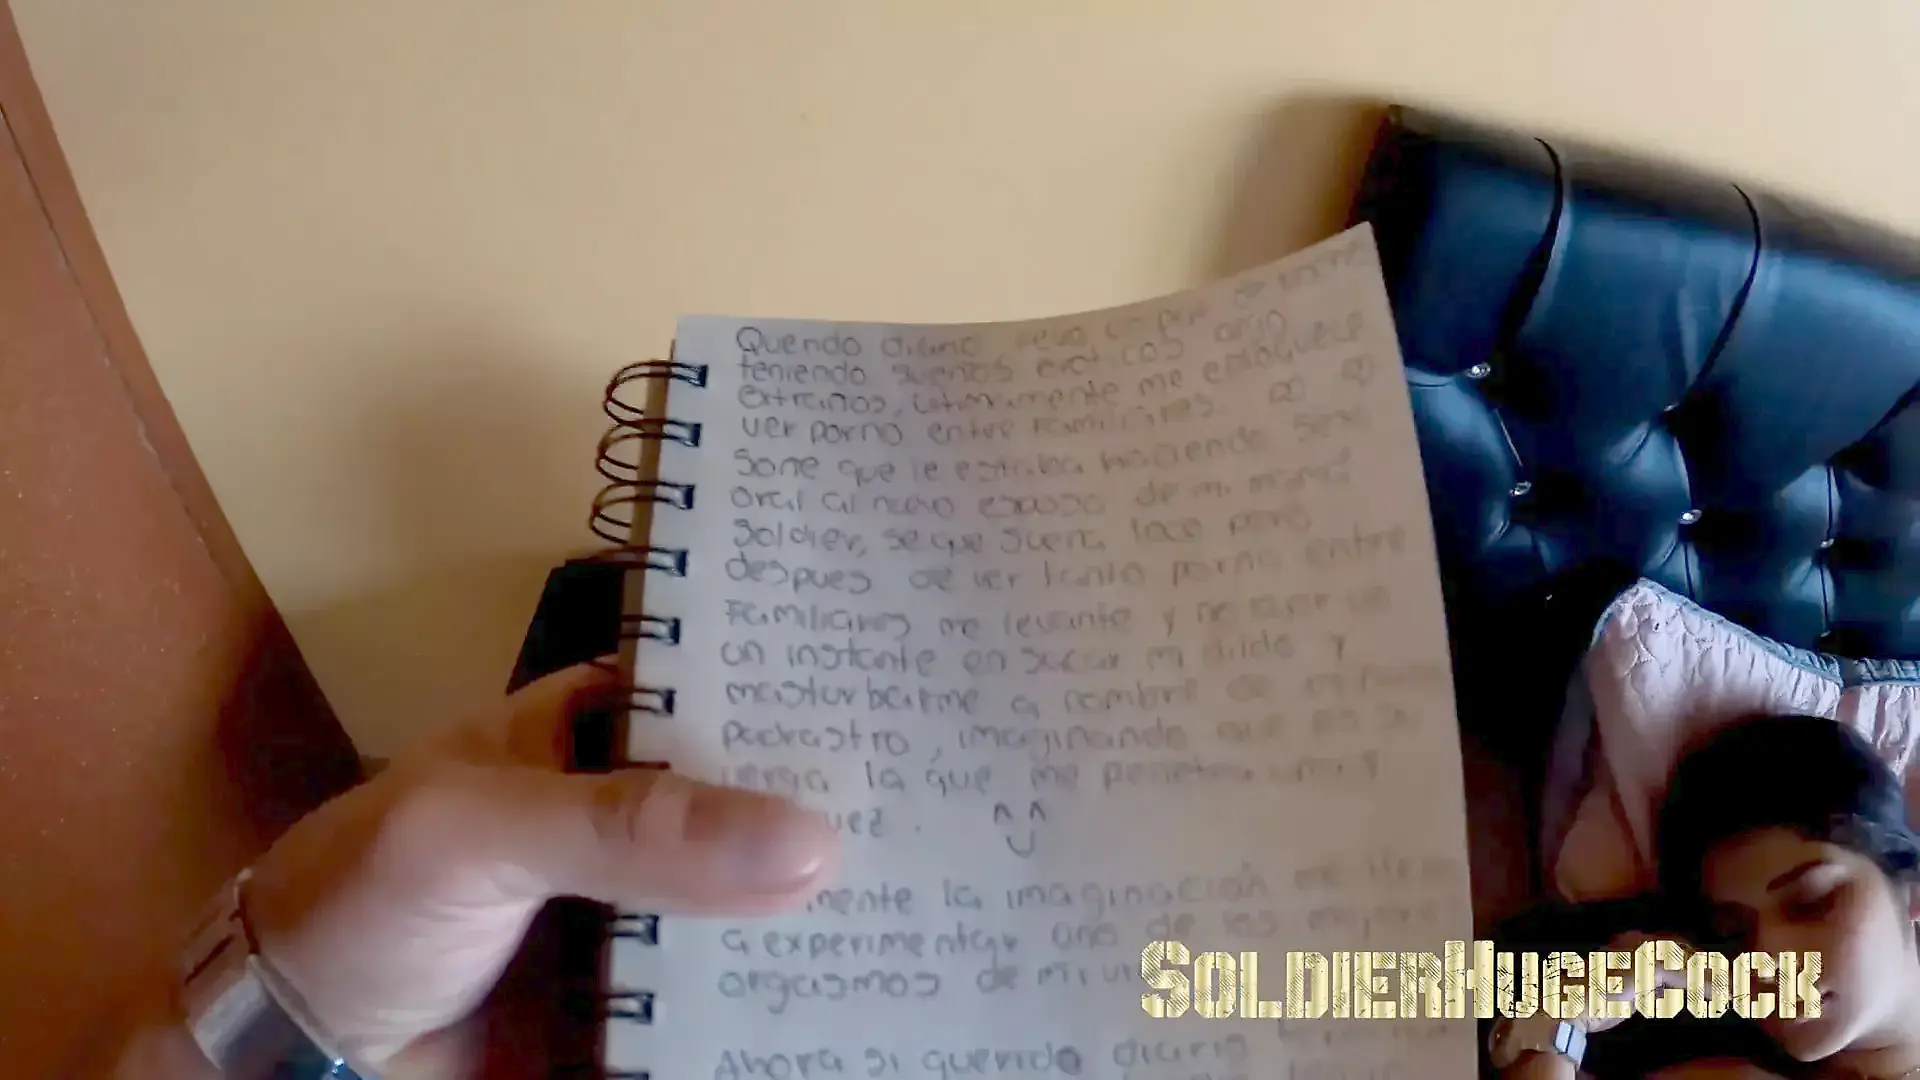 Querido diario llevo un par de noches
teniendo sueños eroticos algo
extraños, ultimamente me enloquece
ver porno entre familiares.
Soñe que le estaba haciendo sexo
oral al nuevo esposo de mi mamá
Soldier, se que suena loco pero
despues de ver tanto porno entre
Familiares me levante y no
un instante en sacar mi dildo y
masturbarme a nombre de mi
padrastro, imaginando que es su
verga la que me penetra una y
vez.
mente la imaginación me
a experimentar uno de los
orgasmos de mi
Ahora si querido diario
SoldierHugeCock